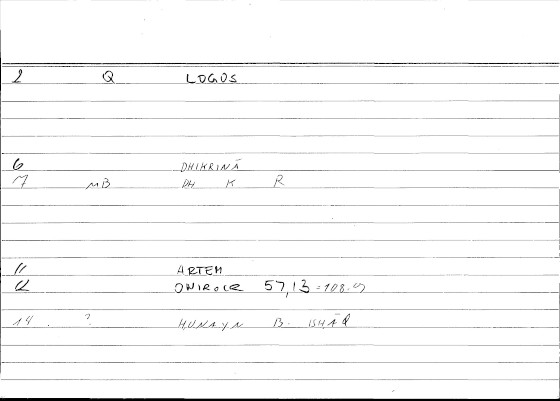 2 Q LOGOS
6 DHIKRINĀ
7 MB DH K R
11 ARTEM
12 ONIROCR 57,13 = 108.
14. ? ḤUNAYN B. ISḤĀQ